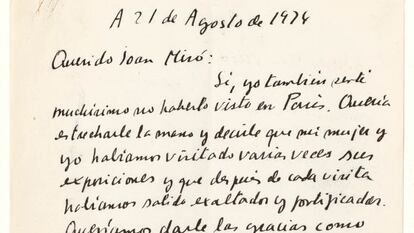 A 21 de Agosto de 1974
Querido Joan Miró:
Sí, yo también sentí
muchísimo no haberlo visto en París. Quería
estrecharle la mano y decirle que mi mujer y
yo habíamos visitado varias veces sus
exposiciones y que después de cada visita
habíamos salido exaltados y fortificados.
Queríamos darle las gracias como